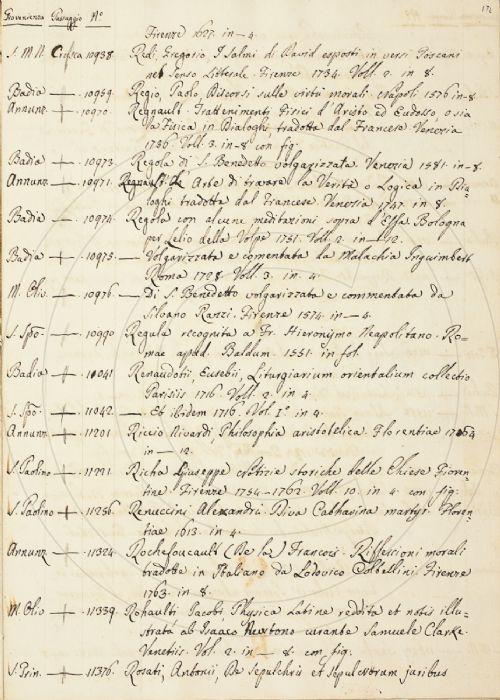 Provenienza Passaggio N.º
171
Firenze 1627. in-4.
S. M. N. Crusca 10938. Redi, Gregorio, I Salmi di David esposti in versi Toscani
nel Senso Litterale. Firenze 1734. Voll. 2. in 8.
Badia — . 10959. Regio, Paolo, Discorsi sulle virtù morali. Napoli 1576 in-8.
Annunz — . 10970. Regnault. Trattenimenti Fisici d'Aristo ed Eudosso, o sia
la Fisica in Dialoghi, tradotta dal Francese Venezia
1736. Voll. 3. in-8º con fig.
Badia — . 10973. Regola di S. Benedetto volgarizzata. Venezia 1581. in-8.
Annunz — . 10971. Regnault de Arte di trovare la Verità o Logica in Dia-
loghi tradotta dal Francese. Venezia 1747. in 8.
Badia — . 10974. Regola con alcune meditazioni sopra d'Essa. Bologna
per Lelio della Volpe 1751. Voll. 2. in — 12.
Badia — . 10975. — Volgarizzata e comentata la Malachia Inguimbert
Roma 1728. Voll. 3. in 4.
M. Oliv. — . 10976. — Di S. Benedetto volgarizzata e commentata da
Silvano Razzi. Firenze 1574. in — 4.
S. Spº — . 10990 Regula recognita a Fr. Hieronymo Neapolitano. Ro-
mae apud. Baldum. 1551. in fol.
Badia — 11041 Renaudotii, Eusebii, Liturgiarium orientalium collectio
Parisiis 1716. Voll. 2. in 4.
S. Spº — . 11042 — . Et ibidem 1716. Vol. Iº in 4.
Annunz — . 11201. Riccio Nivardi Philosophia aristotelica. Florentiae 1764
in — 12.
S. Paolino — . 11221. Richa Giuseppe Notizie storiche delle Chiese Fioren-
tine. Firenze 1754-1762. Voll. 10. in 4. con fig.
S. Paolino — . 11256. Renuccini Alexandri. Diva Catharina martyr. Floren-
tiae 1613. in 4.
Annunz — . 11324 Rochefoucault (De la) Francesi. Riflessioni morali
tradotte in Italiano da Lodovico Coltellini. Firenze
1763. in 8.
M. Oliv — . 11339. Rohaulti Jacobi, Physica Latine reddita et notis illu-
strata ab Isaaco Newtono curante Samuele Clarke.
Venetiis. Vol. 2. in — 8. con fig.
S. Prin. — . 11376. Rosati, Antonii, De sepulchris et sepulcrorum juribus